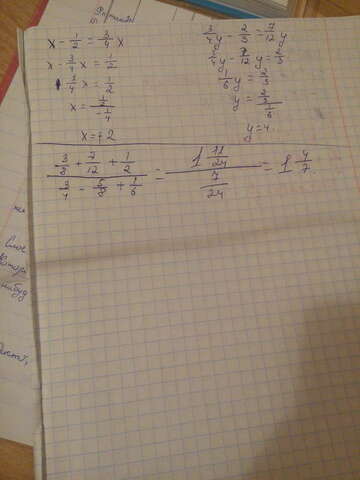 x - 1/2 = 3/4 x
x - 3/4 x = 1/2
1/4 x = 1/2
x = 1/2 / -1/4
x = + 2
3/4 y - 2/3 = 7/12 y
3/4 y - 7/12 y = 2/3
1/6 y = 2/3
y = 2/3 / 1/6
y = 4
(3/8 + 7/12 + 1/2) / (3/4 - 5/8 + 1/6) = (1 11/24) / (7/24) = 1 4/7